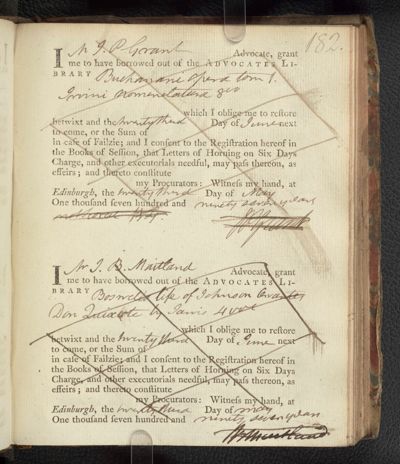 182.
I Mr J. P. Grant Advocate, grant
me to have borrowed out of the ADVOCATES LI-
BRARY Buchanani opera tom 1.
Irvini nomenclatura 8vo
which I oblige me to reſtore
betwixt and the twenty third Day of June next
to come, or the Sum of
in caſe of Failzie; and I conſent to the Regiſtration hereof in
the Books of Seſſion, that Letters of Horning on Six Days
Charge, and other executorials needful, may paſs thereon, as
effeirs; and thereto conſtitute
my Procurators: Witneſs my hand, at
Edinburgh, the twenty third Day of May
One thouſand ſeven hundred and ninety seven years
I Mr J. B. Maitland Advocate, grant
me to have borrowed out of the ADVOCATES LI-
BRARY Boswells life of Johnson
Don Quixote by Jarvis 4 vols
which I oblige me to reſtore
betwixt and the twenty third Day of June next
to come, or the Sum of
in caſe of Failzie; and I conſent to the Regiſtration hereof in
the Books of Seſſion, that Letters of Horning on Six Days
Charge, and other executorials needful, may paſs thereon, as
effeirs; and thereto conſtitute
my Procurators: Witneſs my hand, at
Edinburgh, the twenty third Day of May
One thouſand ſeven hundred and ninety seven years
Maitland